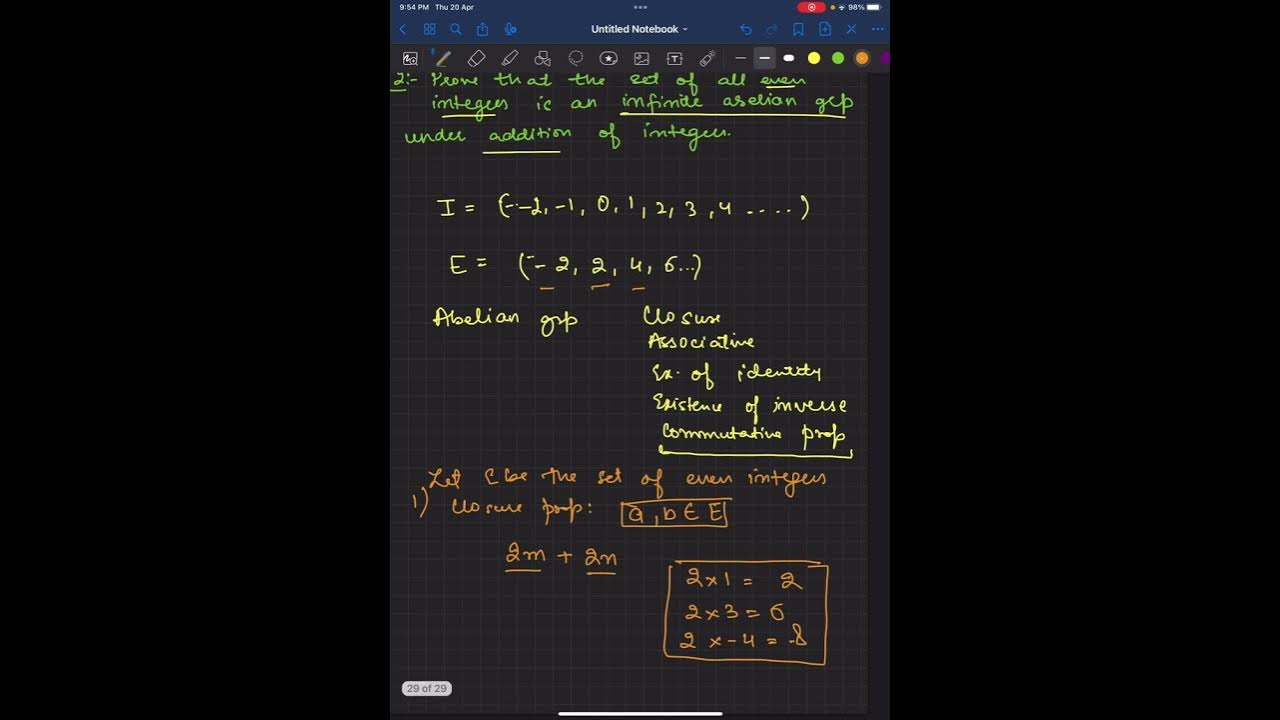 9:54 PM Thu 20 Apr
98%
Untitled Notebook
2:- Prove that the set of all even
integers is an infinite abelian grp
under addition of integers.
I = (--2, -1, 0, 1, 2, 3, 4 .....)
E = (-- 2, 2, 4, 6...)
Abelian grp
Closure
Associative
Ex. of identity
Existence of inverse
Commutative prop
Let E be the set of even integers
1) Closure prop: a, b ∈ E
2m + 2n
2 × 1 = 2
2 × 3 = 6
2 × -4 = -8
29 of 29